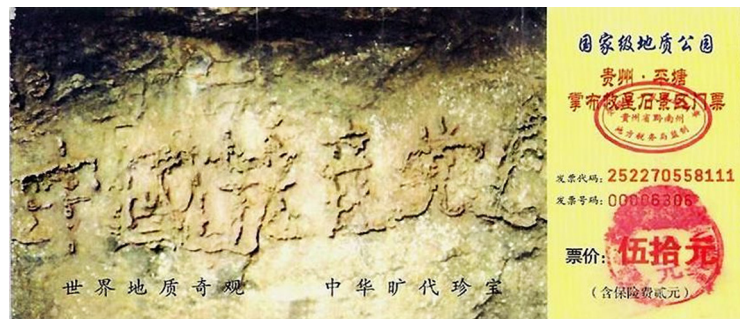 中國共产党亡
世界地质奇观 中华旷代珍宝
国家级地质公园
贵州·平塘
掌布救星石景区门票
贵州省黔南州
地方税务局监制
发票代码:252270558111
发票号码:00006306
票价:伍拾元
(含保险费贰元)